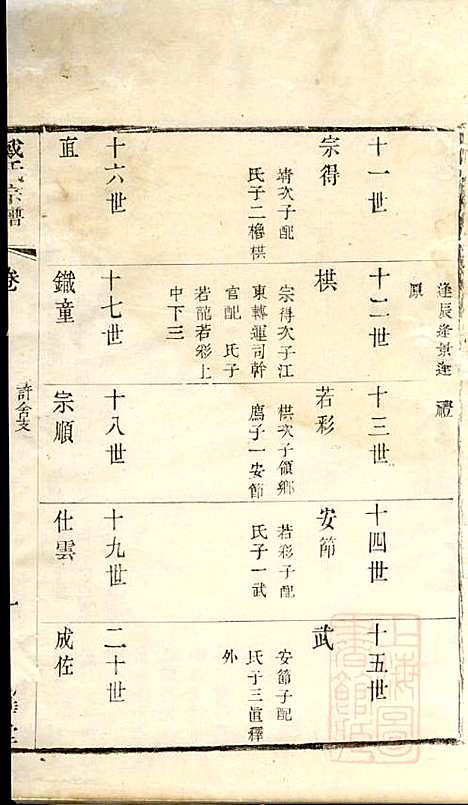 逢辰逢景逢
原
禮
十一世
宗得
靖次子配
氏子二櫓棋
十二世
棋
宗得次子江
東轉運司幹
官配 氏子
若龍若彩上
中下三
十三世
若彩
棋次子領鄉
廌子一安節
十四世
安節
若彩子配
氏子一武
十五世
武
安節子配
氏子三直釋
外
十六世
直
十七世
鐵童
十八世
宗順
十九世
仕雲
二十世
成佐
戴氏宗譜
卷
許舍支